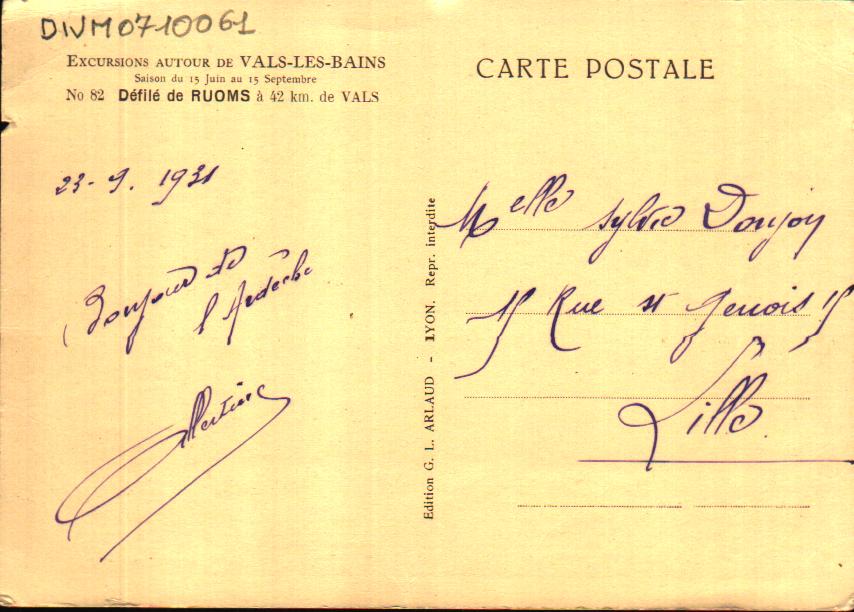 DIVM0710061
EXCURSIONS AUTOUR DE VALS-LES-BAINS
Saison du 15 Juin au 15 Septembre
No 82 Défilé de RUOMS à 42 km. de VALS
23-9. 1931
Bonjour de
l'Ardèche
CARTE POSTALE
Melle Sylvie Donjon
15 Rue St Genois 15
Lille
Edition G. L. ARLAUD - LYON. Repr. interdite